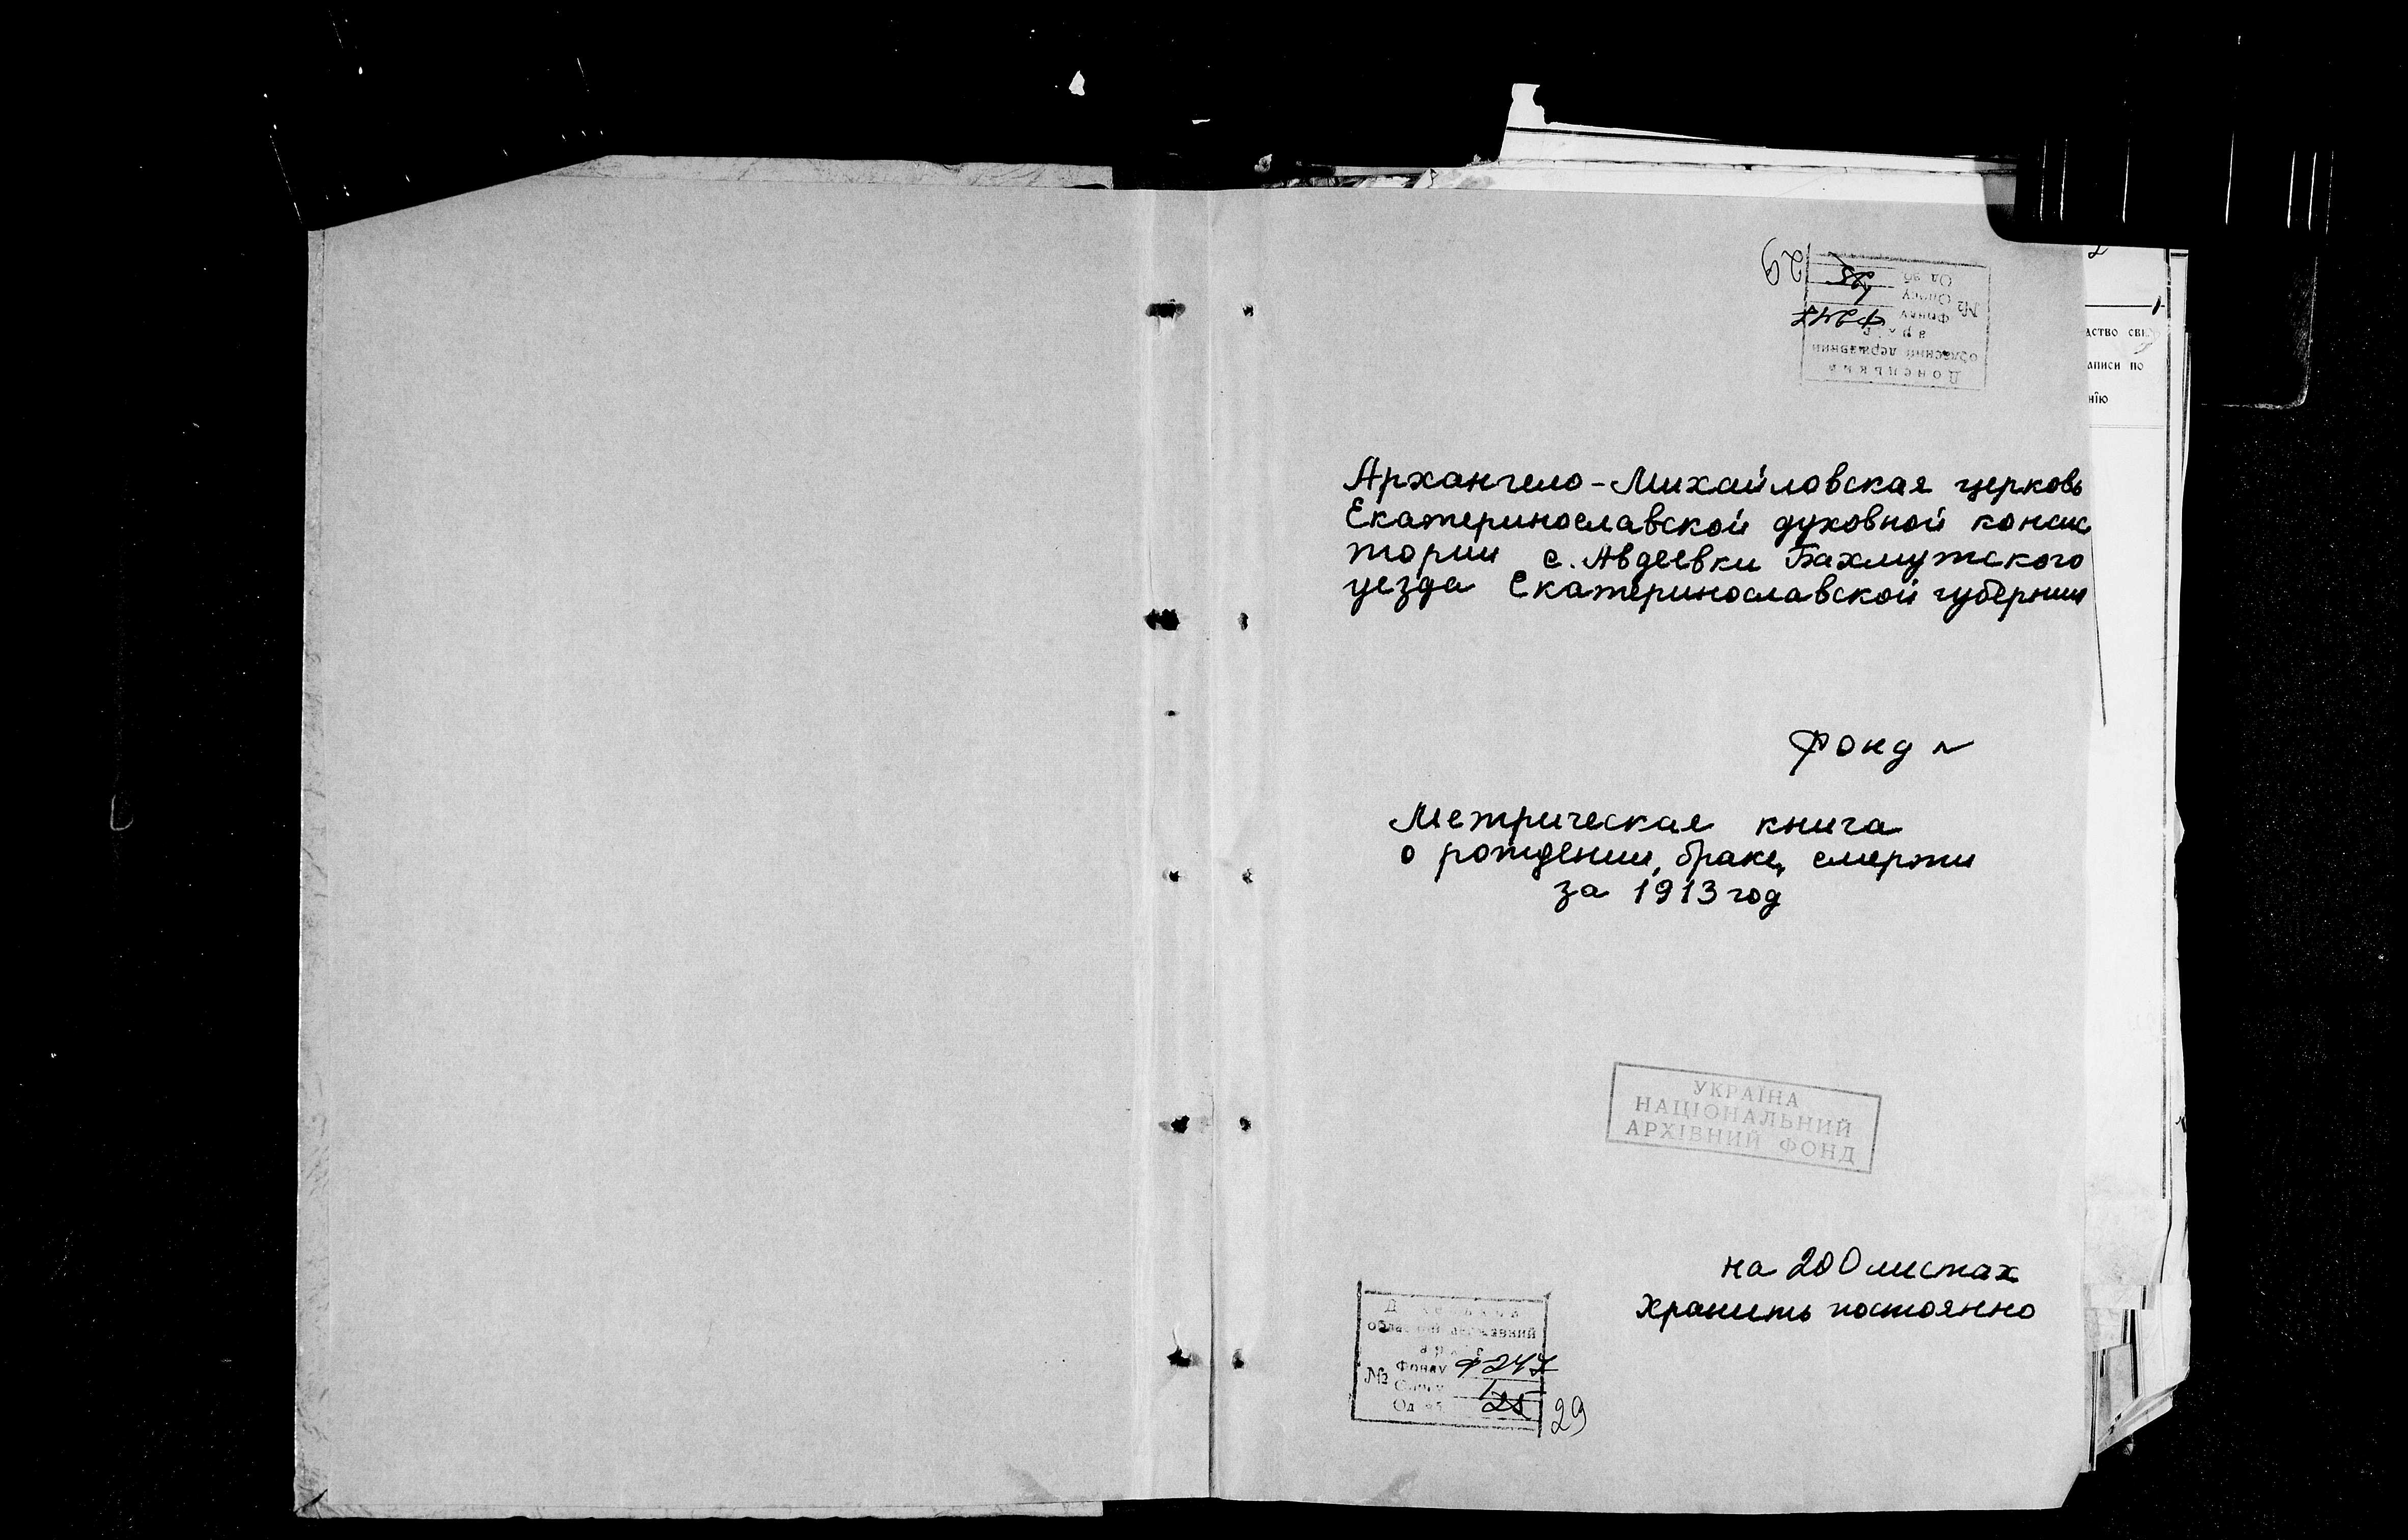 Донецький
обласний державний
архів
№ Фонду Ф247
Опису 1
Од зб 25 29
Архангело-Михайловская церковь
Екатеринославской духовной консис
тории с. Авдеевки Бахмутского
уезда Екатеринославской губернии
Фонд №
Метрическая книга
о рождении, браке, смерти
за 1913 год
УКРАЇНА
НАЦІОНАЛЬНИЙ
АРХІВНИЙ ФОНД
на 200 листах
Хранить постоянно
Донецький
обласний державний
архів
№ Фонду Ф247
Опису 1
Од зб 25 29
аписи по
нію